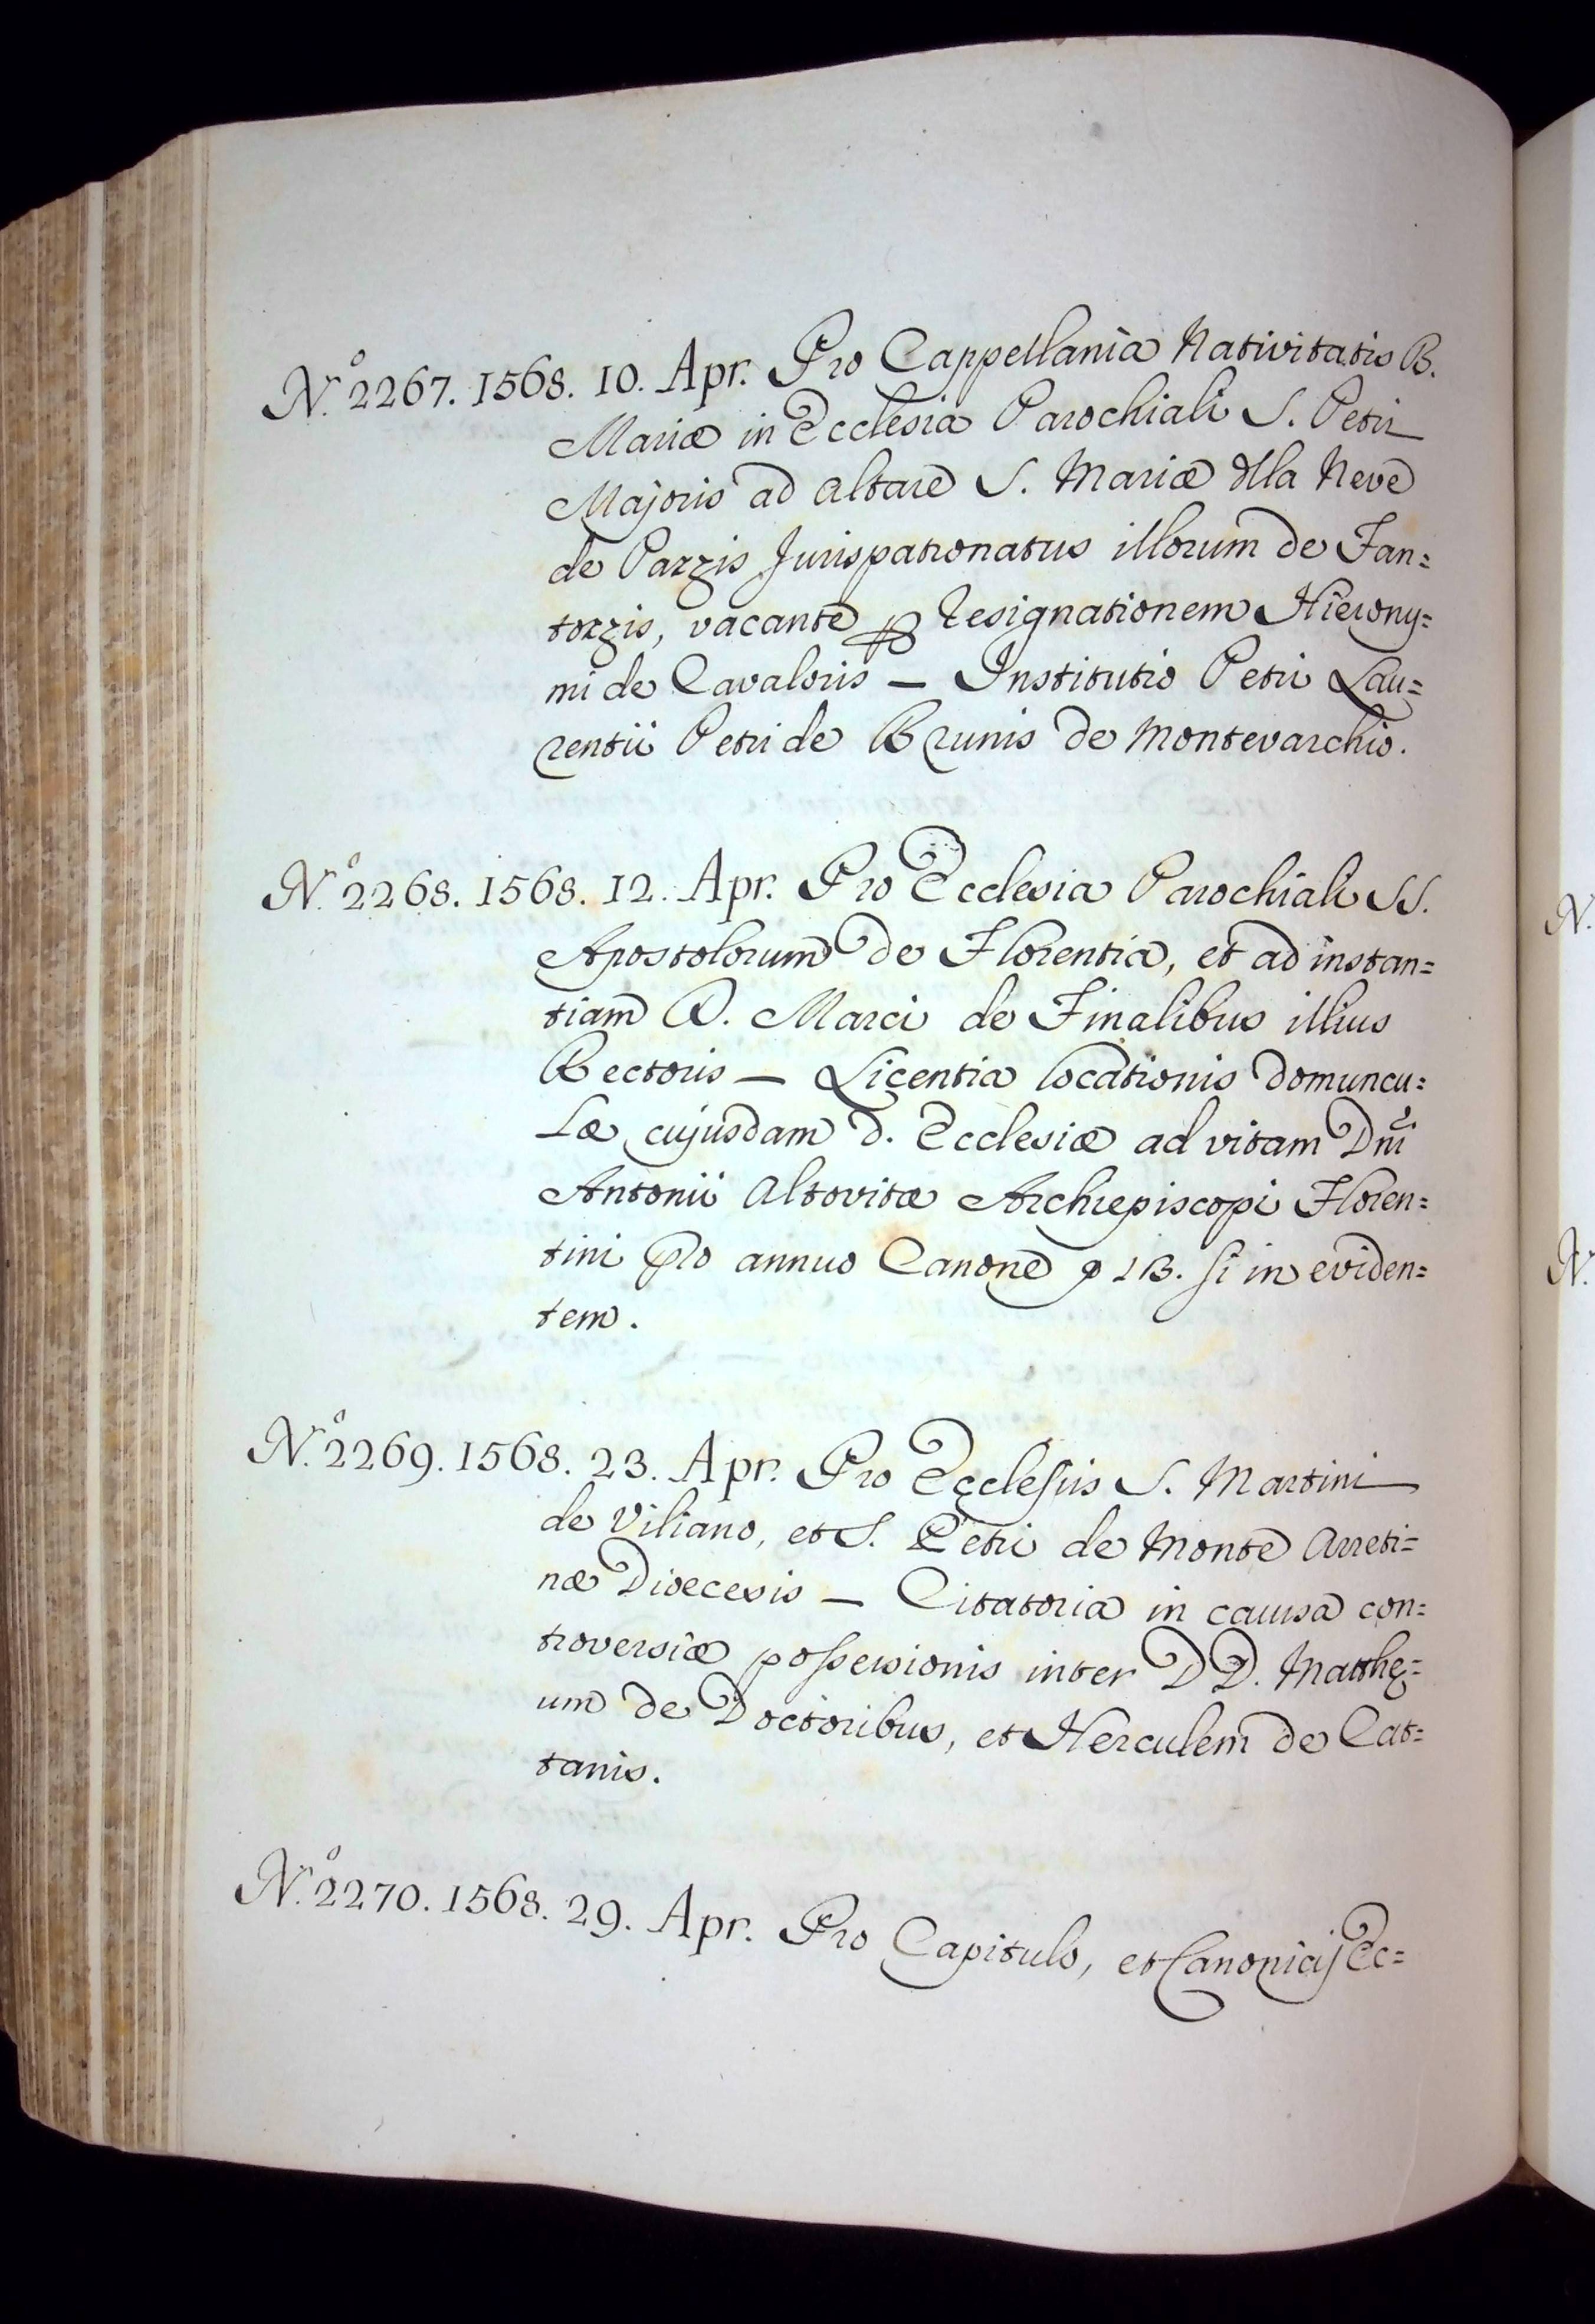 N.º 2267. 1568. 10. Apr. Pro Cappellania Nativitatis B.
Mariæ in Ecclesia Parochiali S. Petri
Majoris ad altare S. Mariæ dlla Neve
de Pazzis Jurispatronatus illorum de Fan=
tozzis, vacante Resignationem Hierony=
mi de Cavaloris — Institutio Petri Lau=
rentii Petri de Brunis de Montevarchio.
N.º 2268. 1568. 12. Apr. Pro Ecclesia Parochiali SS.
Apostolorum de Florentia, et ad instan=
tiam D. Marci de Finalibus illius
Rectoris — Licentia locationis domuncu=
læ cujusdam d. Ecclesiæ ad vitam Dñi
Antonii Altovitæ Archiepiscopi Floren=
tini pro annuo Canone si in eviden=
tem.
N.º 2269. 1568. 23. Apr. Pro Ecclesiis S. Martini
de Viliano, et S. Petri de Monte Arreti=
næ Dioecesis — Citatoria in causa con=
troversiæ possessionis inter DD. Matthę=
um de Doctoribus, et Herculem de Cat=
tanis.
N.º 2270. 1568. 29. Apr. Pro Capitulo, et Canonicis Ec=
N.
N.